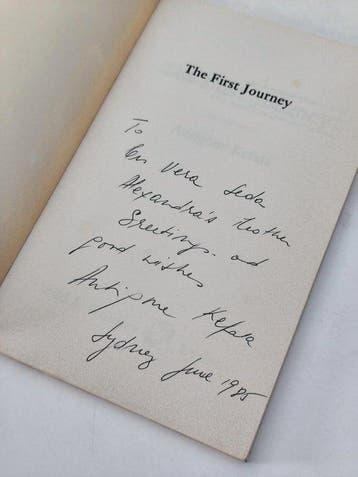 The First Journey
To
Vera
Alexandra's Mother
Greetings. and
good wishes
Antigone Kefala
Sydney June 1985